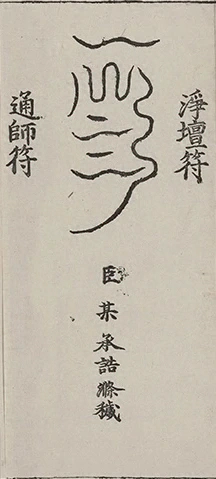 淨壇符
臣某承誥滌穢
通師符